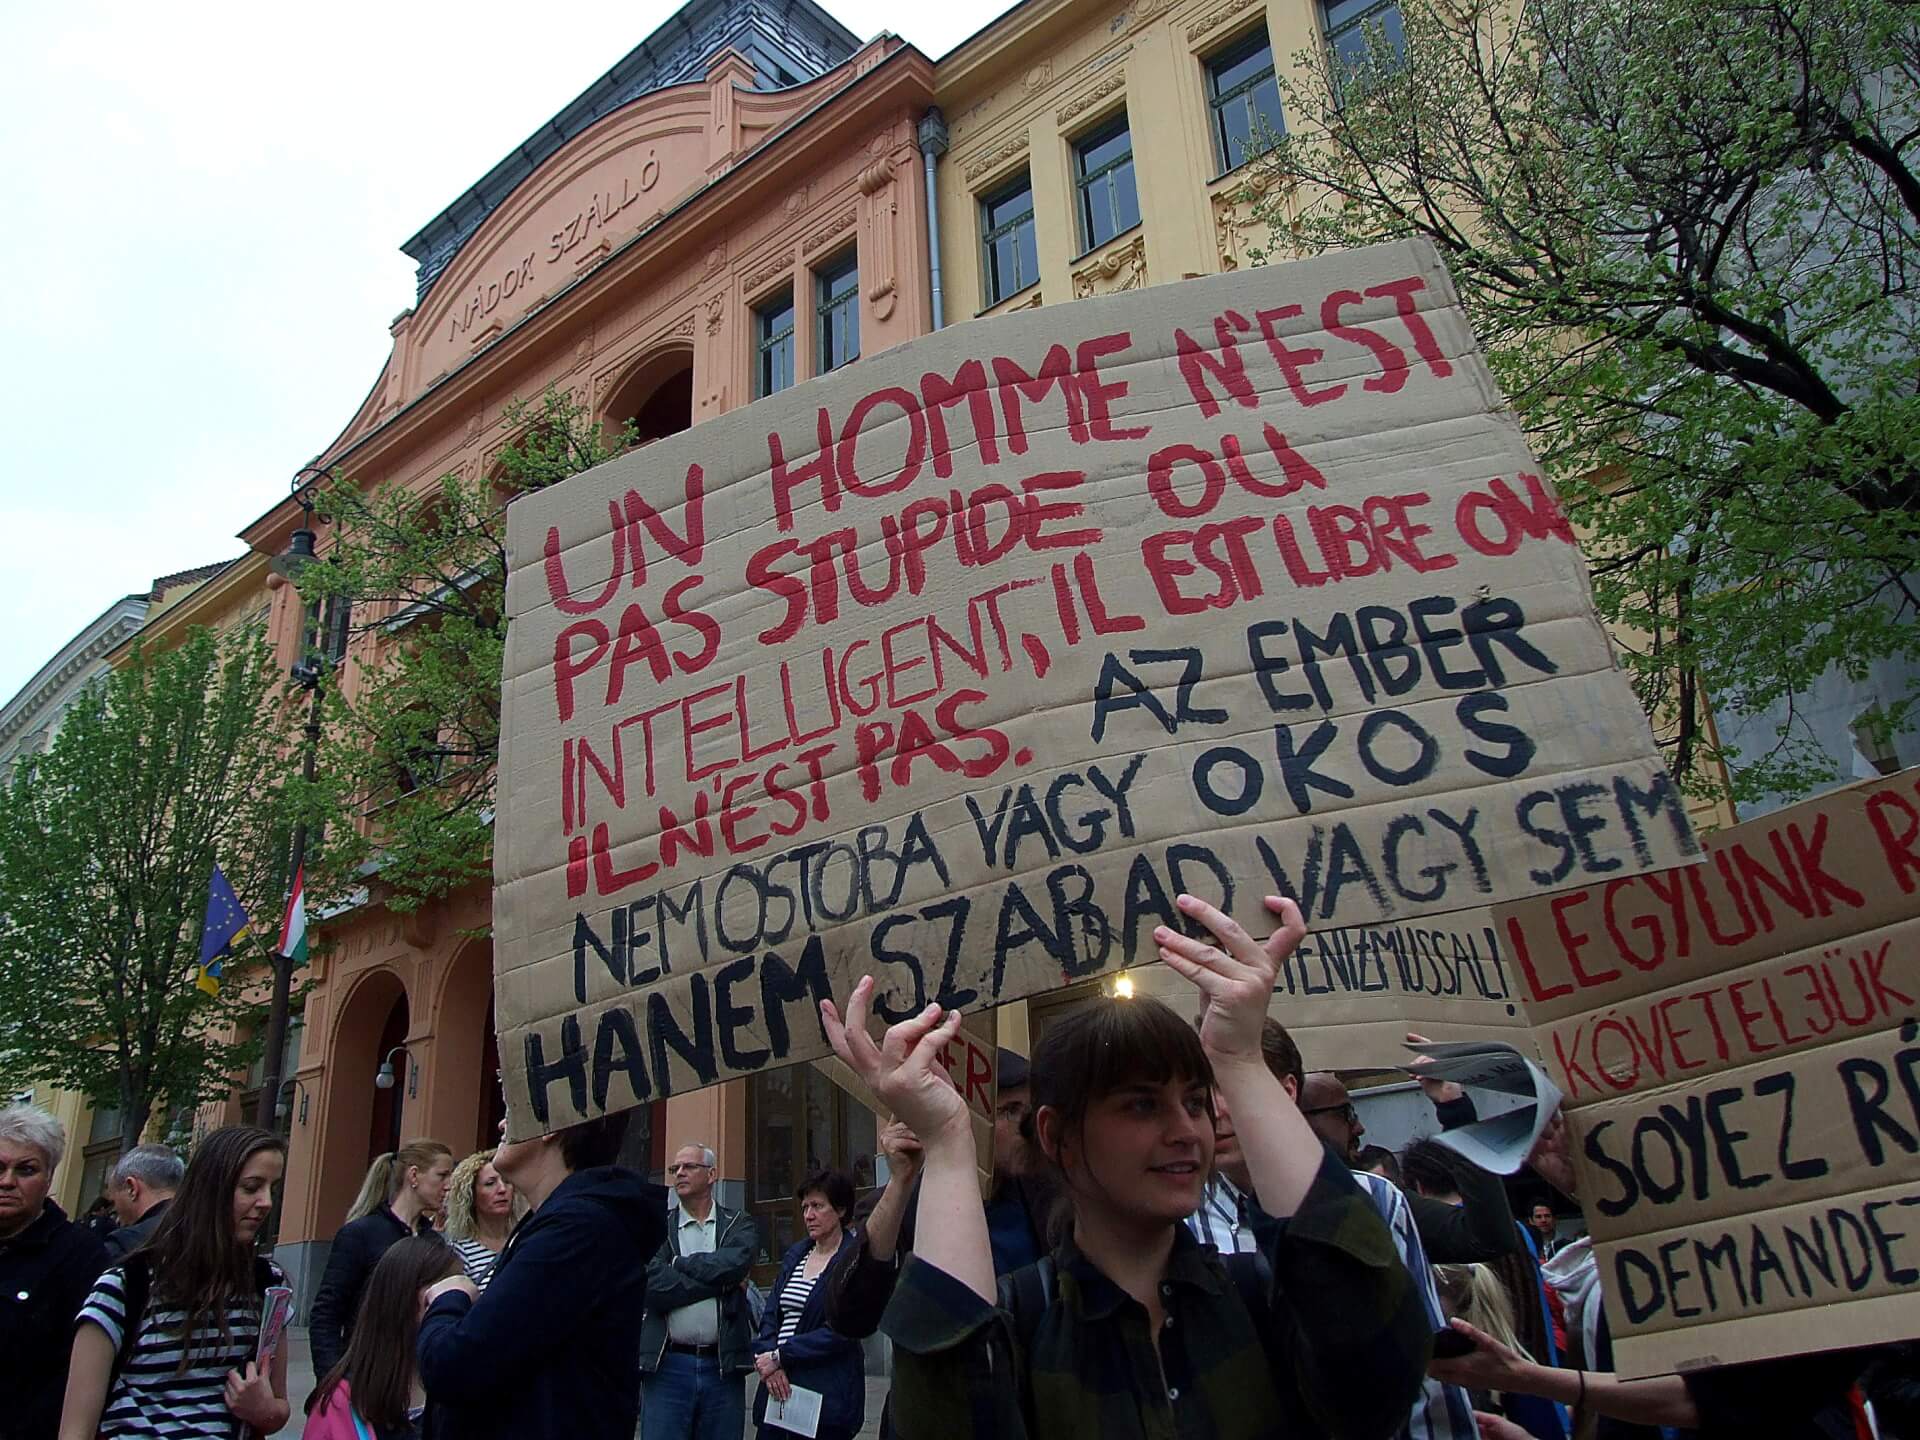 NÁDOR SZÁLLÓ
UN HOMME N'EST
PAS STUPIDE OU
INTELLIGENT, IL EST LIBRE OU
IL N'EST PAS. AZ EMBER
NEM OSTOBA VAGY OKOS
HANEM SZABAD VAGY SEM
LEGYÜNK
KÖVETELJÜK
SOYEZ
DEMANDEZ